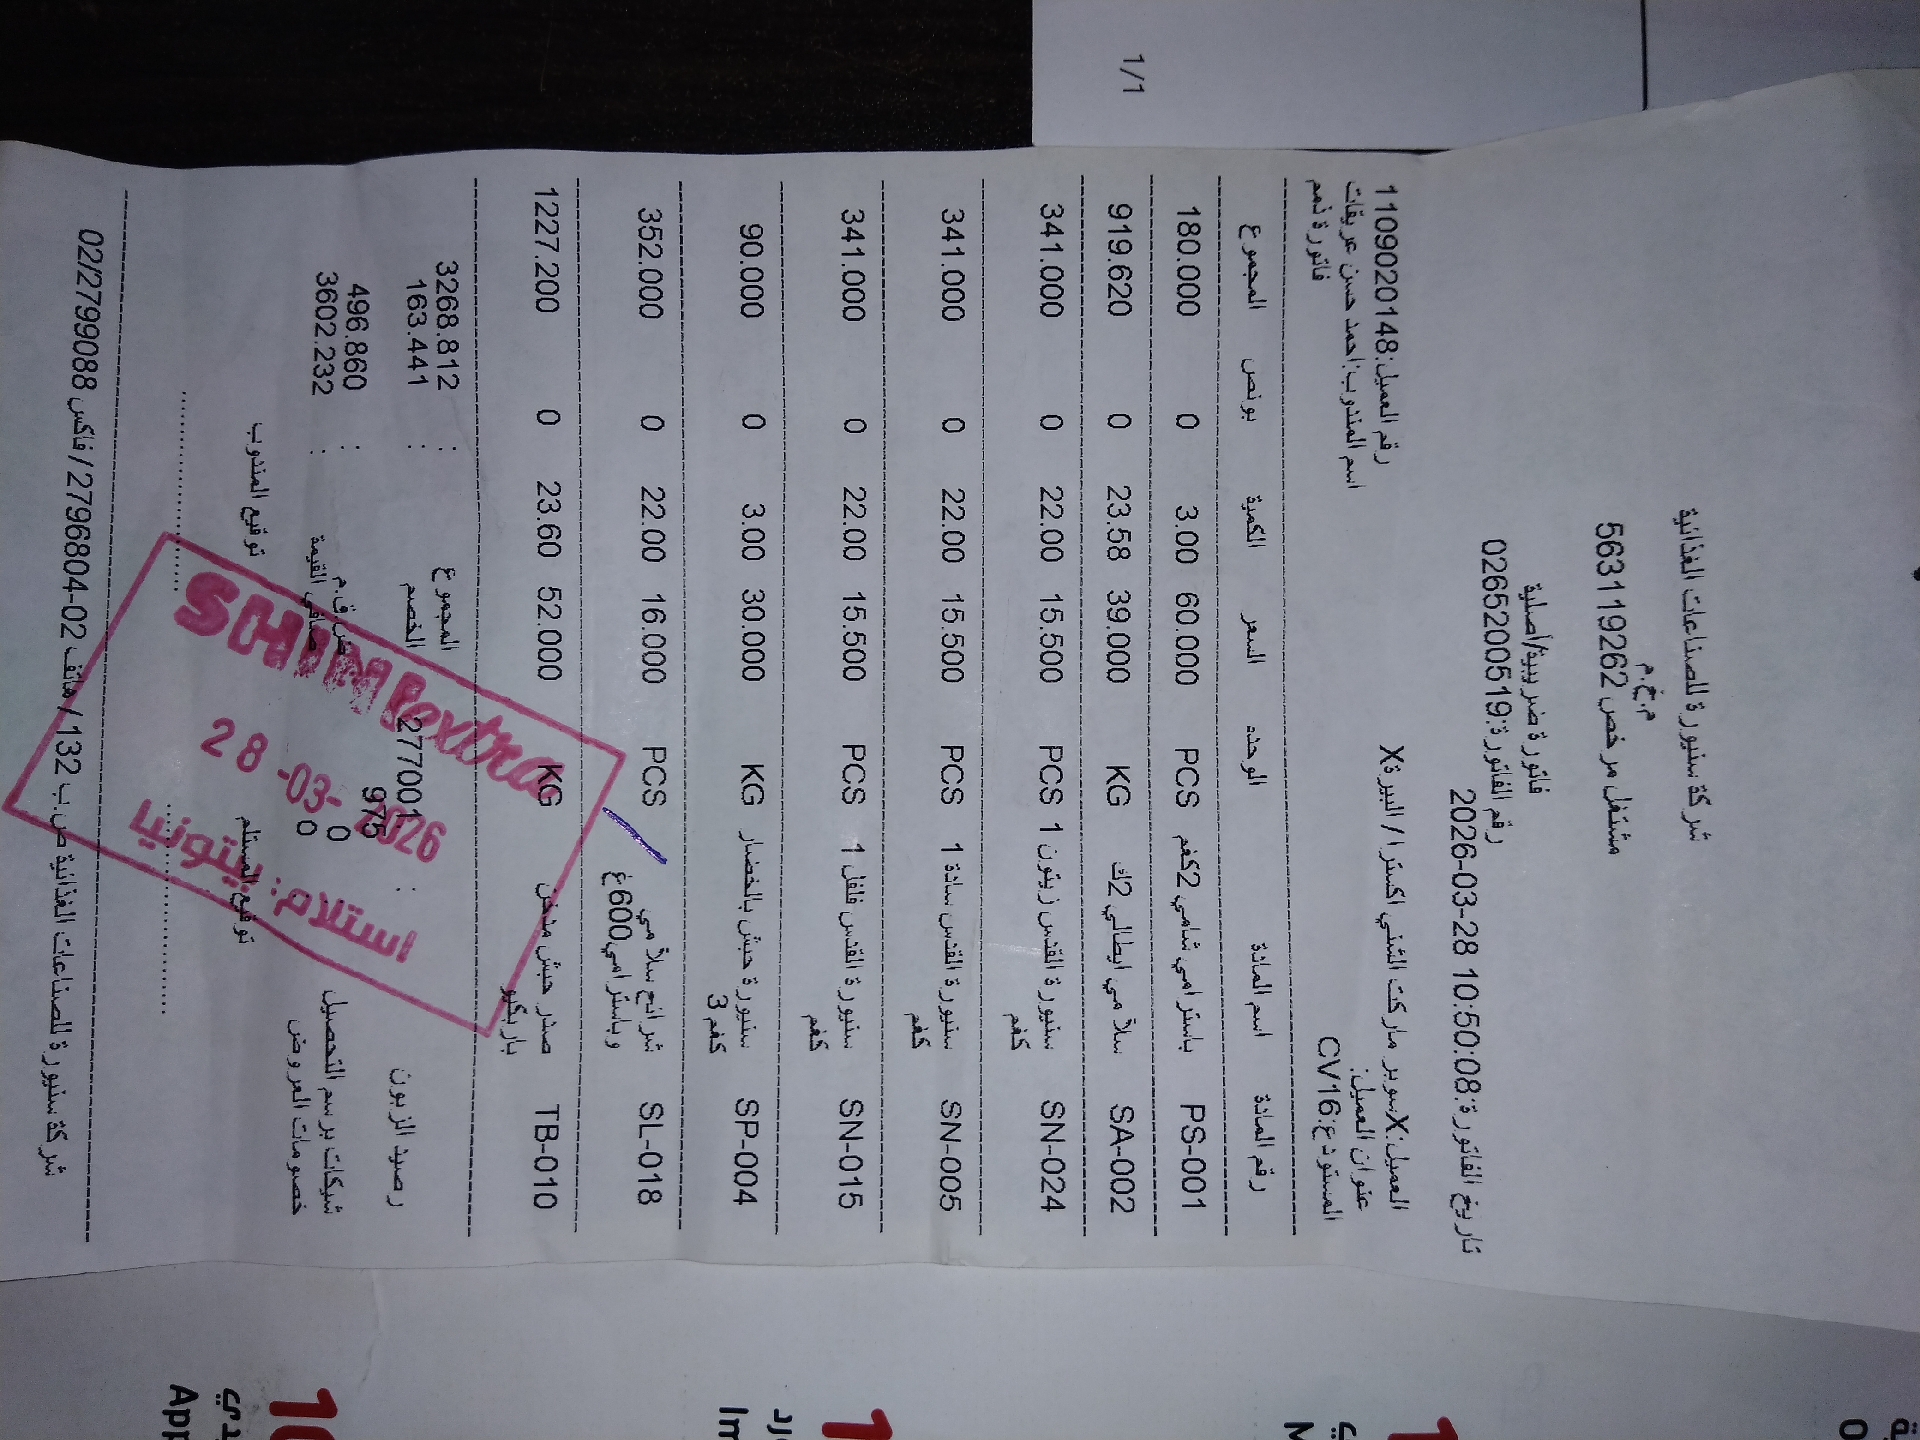 شركة سنيورة للصناعات الغذائية
م.خ.م
مشتغل مرخص 563119262
فاتورة ضريبية/أصلية
رقم الفاتورة:0265200519
تاريخ الفاتورة:2026-03-28 10:50:08
العميل:Xسوبر ماركت الشني اكسترا / البيرةX رقم العميل:1109020148
عنوان العميل: اسم المندوب:احمد حسن عريقات
المستودع ع:CV16 فاتورة ذمم
رقم المادة اسم المادة الوحده السعر الكمية بونص المجموع
PS-001 باسترامي شامي 2كغم PCS 60.000 3.00 0 180.000
SA-002 سلامي ايطالي 2ك KG 39.000 23.58 0 919.620
SN-024 سنيورة القدس زيتون 1 PCS 15.500 22.00 0 341.000
كغم
SN-005 سنيورة القدس سادة 1 PCS 15.500 22.00 0 341.000
كغم
SN-015 سنيورة القدس فلفل 1 PCS 15.500 22.00 0 341.000
كغم
SP-004 سنيورة حبش بالخضار KG 30.000 3.00 0 90.000
3 كغم
SL-018 شرائح سلامي PCS 16.000 22.00 0 352.000
وباسترامي600غ
TB-010 صدر حبش مدخن KG 52.000 23.60 0 1227.200
باربكيو
المجموع : 3268.812
رصيد الزبون : 277001 الخصم : 163.441
975
شيكات برسم التحصيل 0 ض.ق.م : 496.860
خصومات العروض 0 صافي القيمة : 3602.232
توقيع المستلم توقيع المندوب
شركة سنيورة للصناعات الغذائية ص.ب 132 / هاتف 02-2796804 / فاكس 02/2799088
SHINI extra
28-03-2026
استلام: بيتونيا
1/1